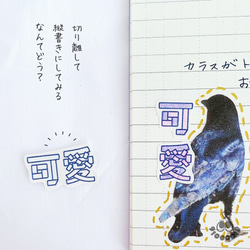 切り離して
縦書きにしてみる
なんてどう？
可愛
カラスがト
お
可
愛